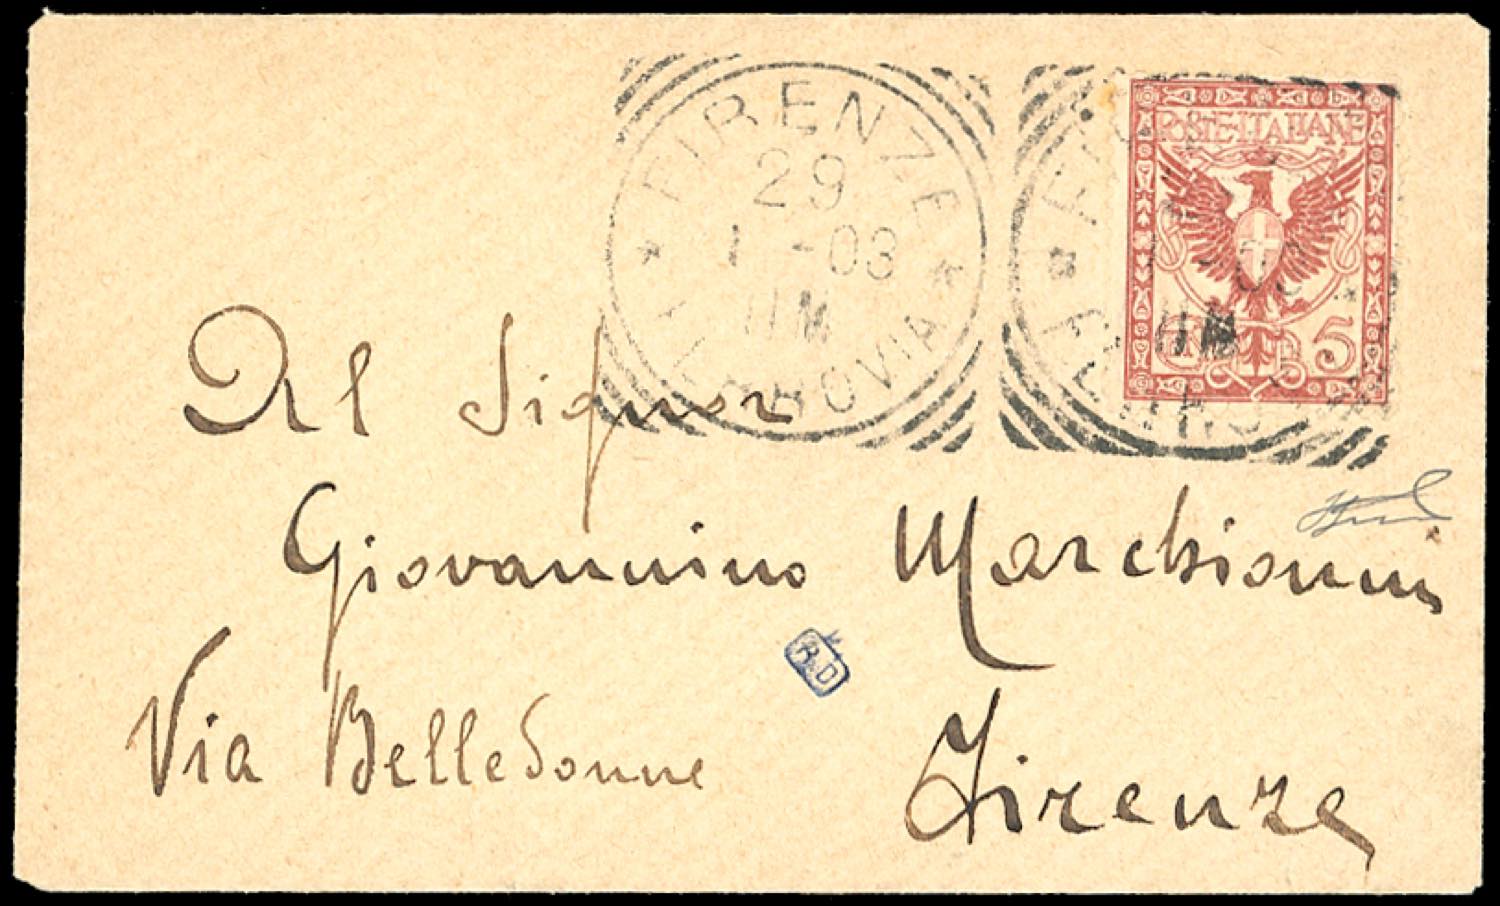 FIRENZE
29
1 -03
11M
FERROVIA
POSTE ITALIANE
5
11M
Al Signor
Giovannino Marchionni
R.D
Via Belledonne
Firenze